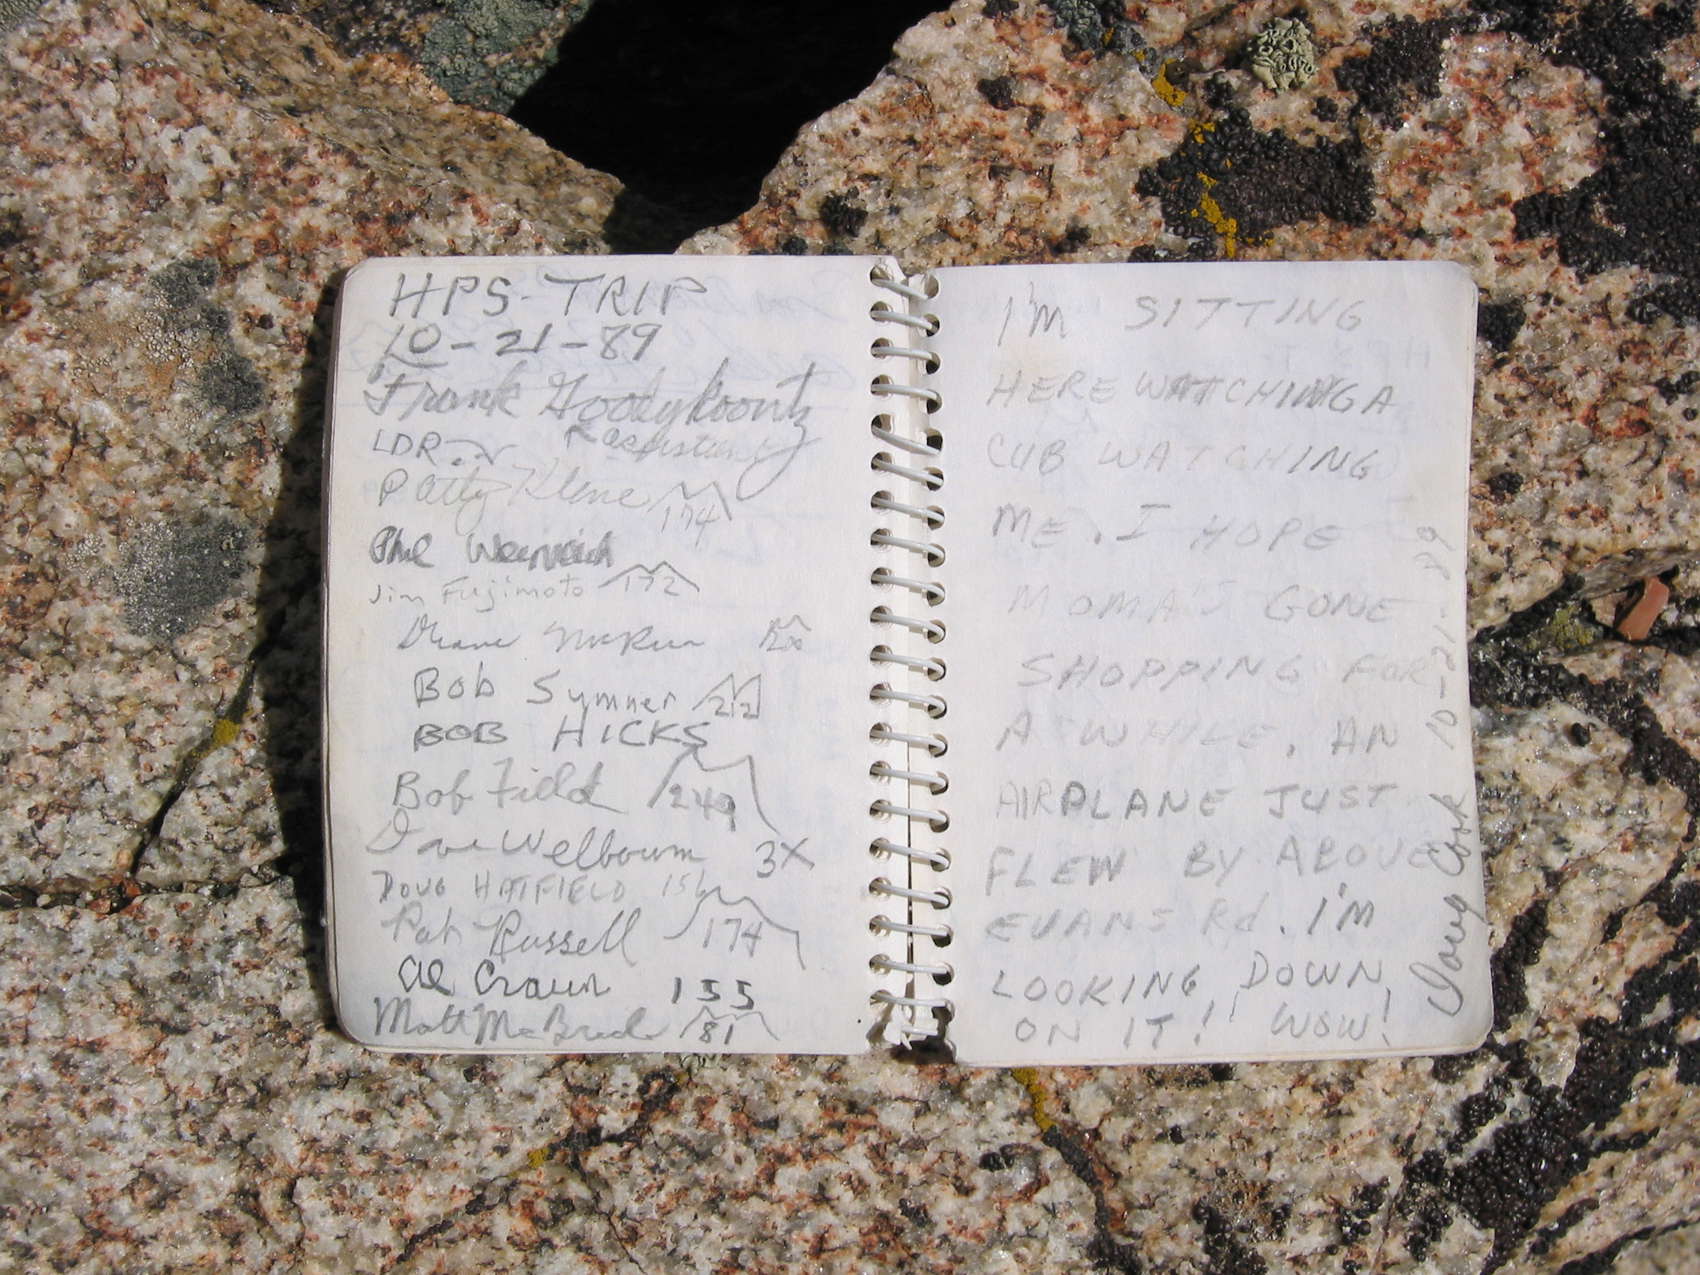 HPS-TRIP
10-21-89
Frank Goodykoontz
LDR
Patty Kline 174
Jim Fujimoto 172
Diane
Bob Sumner 212
BOB HICKS
Bob Field 249
Dave Welbourn 3X
DOUG HATFIELD 156
Pat Russell 174
Al Craun 155
Matt McBride 81
I'M SITTING
HERE WATCHING A
CUB WATCHING
ME. I HOPE
MOMA'S GONE
SHOPPING FOR
A WHILE. AN
AIRPLANE JUST
FLEW BY ABOVE
EVANS Rd. I'M
LOOKING DOWN
ON IT! WOW!
Doug Cook 10-21-89